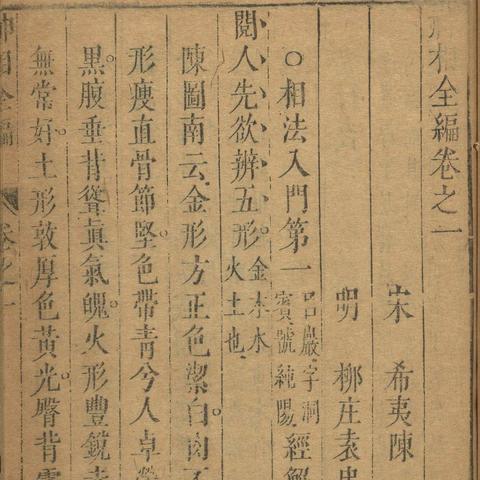 神相全編卷之一
宋 希夷陳
明 柳庄袁忠
○相法入門第一 呂巖字洞賓號純陽 經解
閱人先欲辨五形。金木水火土也
陳圖南云金形方正色潔白。肉不
形瘦直骨節堅。色帶青兮人卓犖
黑。腹垂背聳眞氣魄。火形豐銳赤
無常好。土形敦厚色黃光。臀背露
神相全編 卷之一